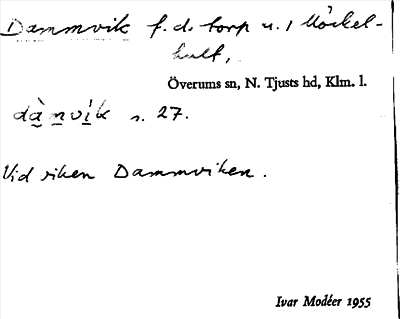 Dammvik f.d. torp u. 1 Möckel-
hult,
Överums sn, N. Tjusts hd, Klm. l.
dà̱ṉvi̱k s. 27.
Vid viken Dammviken.
Ivar Modéer 1955